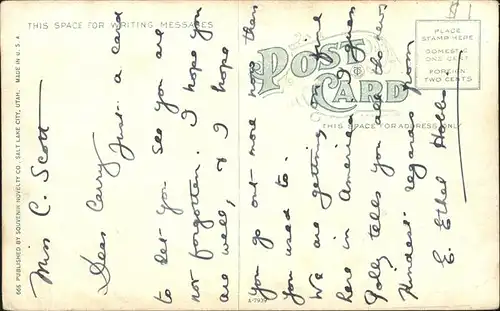 THIS SPACE FOR WRITING MESSAGES
666 PUBLISHED BY SOUVENIR NOVELTY CO., SALT LAKE CITY, UTAH. MADE IN U.S.A.
POST CARD
THIS SPACE FOR ADDRESS ONLY
PLACE
STAMP HERE
DOMESTIC
ONE CENT
FOREIGN
TWO CENTS
Miss C. Scott
Dear Carry
Just a card
to let you see you are
not forgotten. I hope you
are well, & I hope
you go out more now than
you used to.
We are getting on fine
here in America. I guess
Polly tells you all the news
Kindest regards from
E. Ethel Hobbs